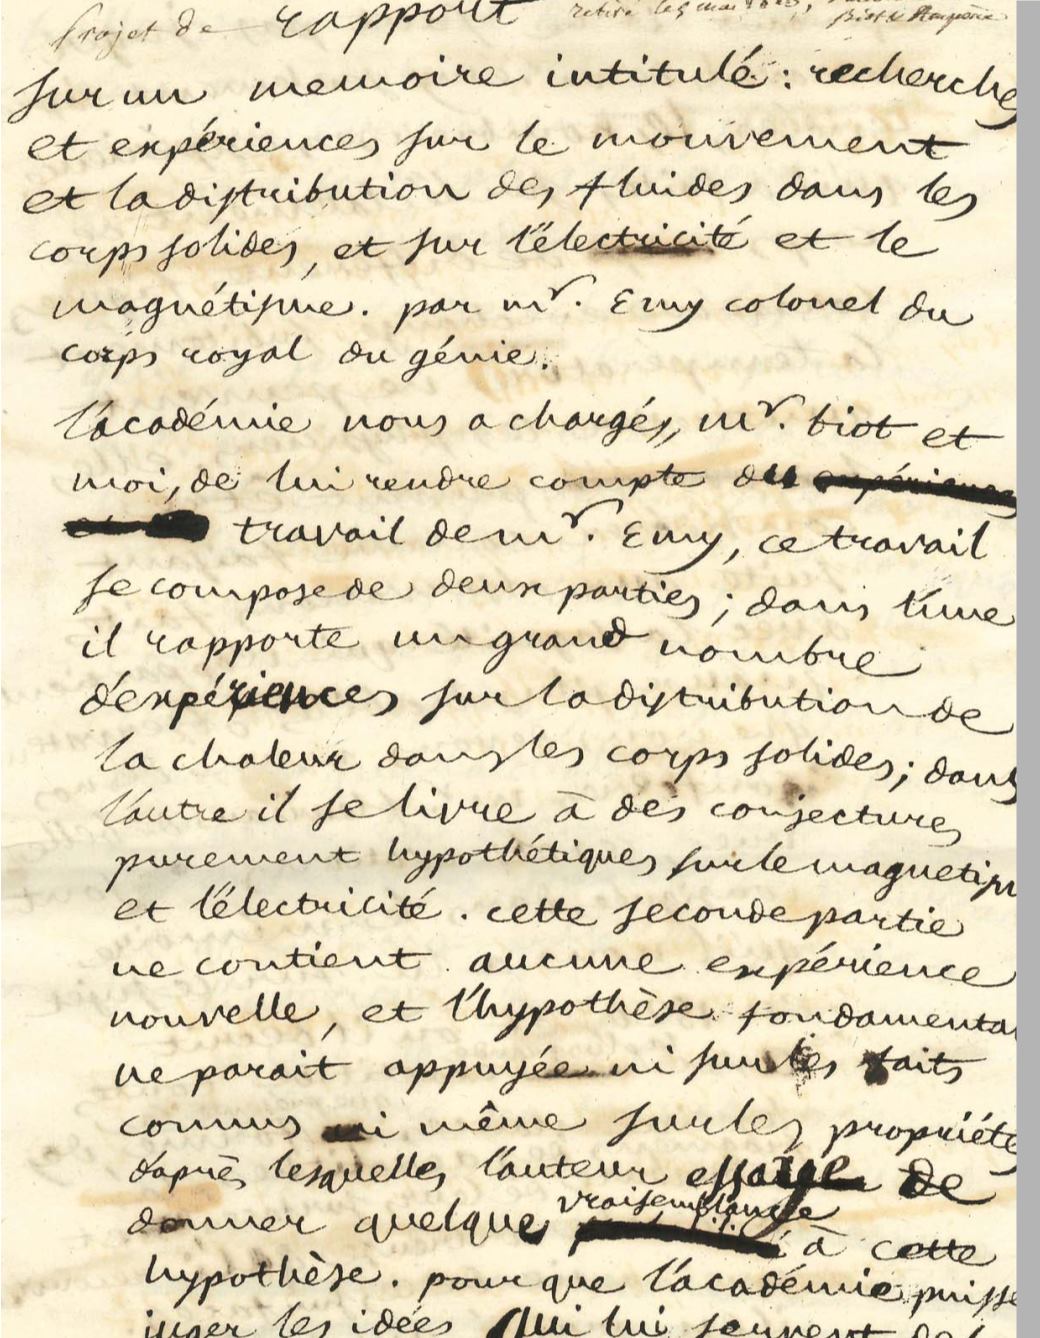 projet de rapport
Biot & Ampère
sur un memoire intitulé : recherches
et expériences sur le mouvement
et la distribution des fluides dans les
corps solides, et sur l'électricité et le
magnétisme. par mr. Emy colonel du
corps royal du génie.
l'académie nous a chargés, mr. biot et
moi, de lui rendre compte du expériences
travail de mr. Emy, ce travail
se compose de deux parties ; dans l'une
il rapporte un grand nombre
d'expériences sur la distribution de
la chaleur dans les corps solides ; dans
l'autre il se livre à des conjectures
purement hypothétiques sur le magnetism
et l'électricité. cette seconde partie
ne contient aucune expérience
nouvelle, et l'hypothèse fondamenta
ne parait appuyée ni sur les faits
connus ni même sur les propriétés
d'après lesquelles l'auteur essaye de
vraisemblance
donner quelque à cette
hypothèse. pour que l'académie puisse
juger les idées qui lui servent de